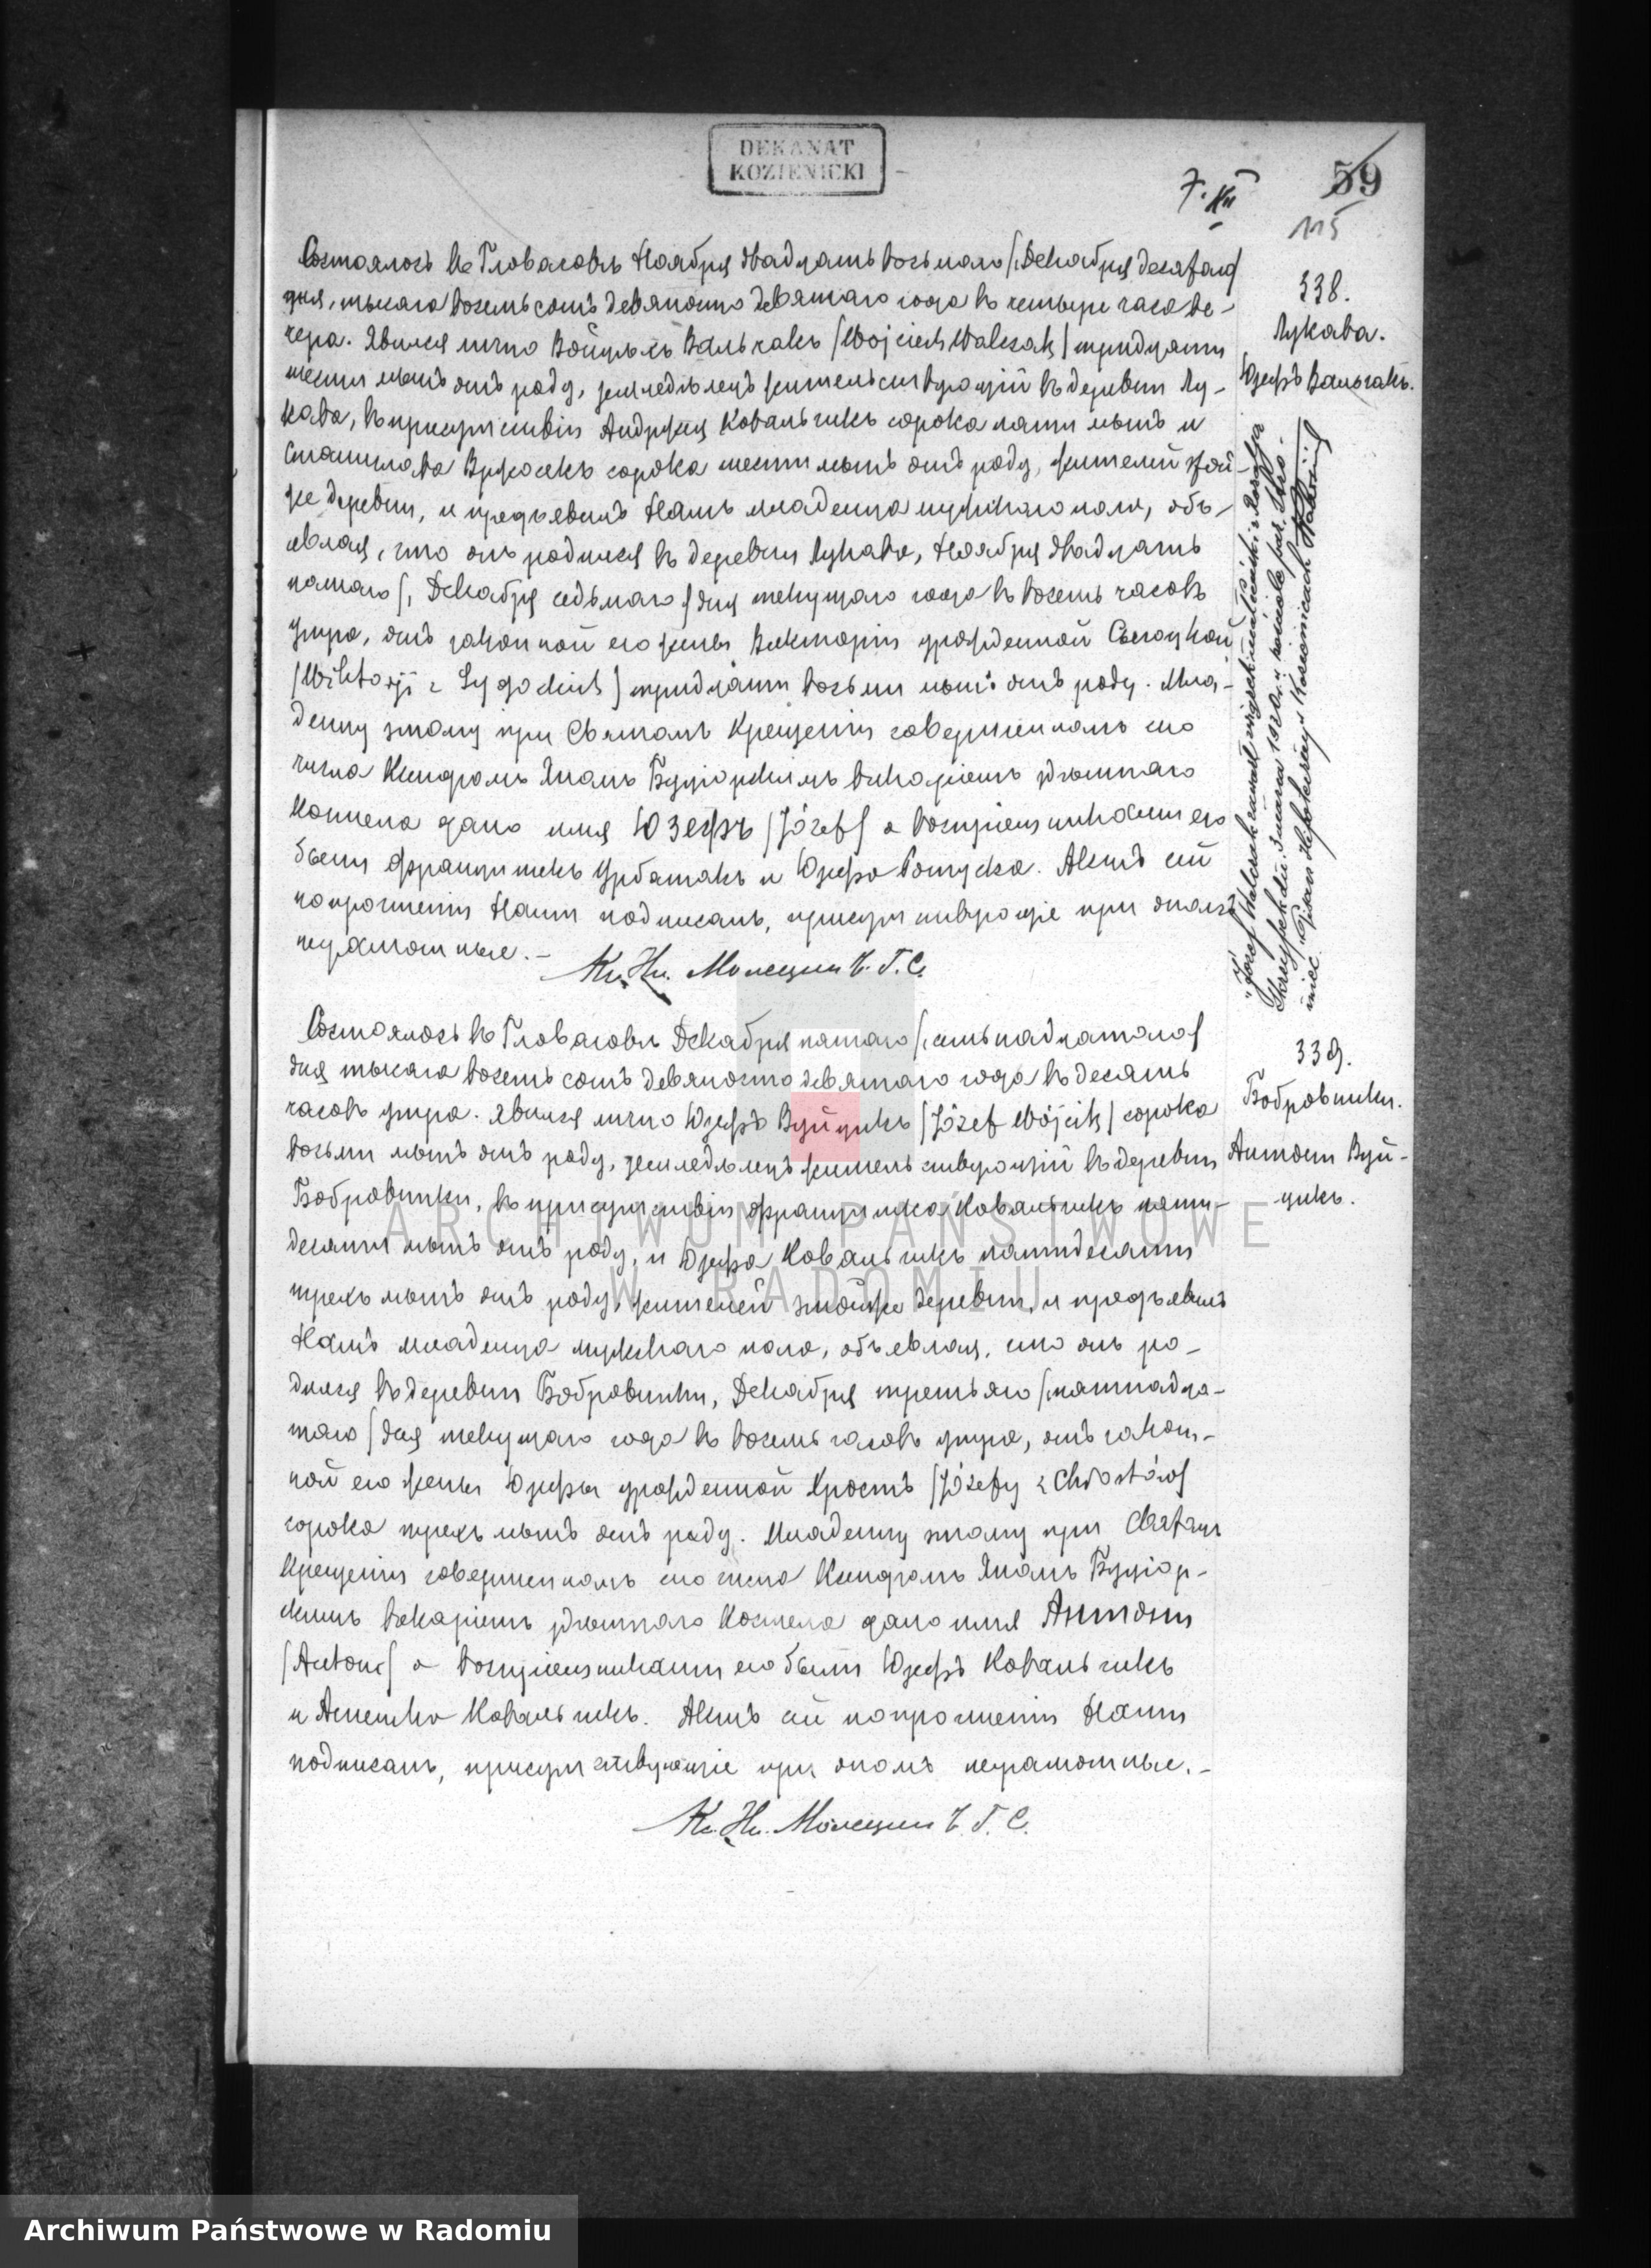 DEKANAT
KOZIENICKI
7. XII
59
115
338.
Лукава.
Юзефъ Вальчакъ.
Состоялось въ Гловачовѣ Ноября двадцать восьмаго /:Декабря десятаго/
дня, тысяча восемьсотъ девяносто девятаго года въ четыре часа ве-
чера. Явился лично Войцѣхъ Вальчакъ /Wojciech Walczak/ тридцати
шести лѣтъ отъ роду, земледѣлецъ жительствующій въ деревни Лу-
кава, въ присутствіи Андржея Ковальчикъ сорока пяти лѣтъ и
Станислава Вржосекъ сорока шести лѣтъ отъ роду, жителей той-
же деревни, и предъявилъ Намъ младенца мужскаго пола, объ-
являя, что онъ родился въ деревни Лукава, Ноября двадцать
пятаго /:Декабря седьмаго/ дня текущаго года въ восемь часовъ
утра, отъ законной его жены Викторіи урожденной
/Wiktorji z / тридцати восьми лѣтъ отъ роду. Мла-
денцу этому при Святомъ Крещеніи совершенномъ сего
числа Ксендзомъ Яномъ викаріемъ здѣшняго
Костела дано имя Юзефъ /Józef/ а воспріемниками его
были Францишекъ Урбанякъ и Юзефа. Актъ сей
по прочтеніи Нами подписанъ, присутствующіе при ономъ
неграмотные.-
Кс. Ив. Ч. Г. С.
"Józef Walczak zawarł związek małżeński z Rozalją
dn. 1920 r. w kościele par.
"Pisarz Hipoteczny w Kozienicach
339.
Бобровники.
Антони Вуй-
цикъ.
Состоялось въ Гловачовѣ Декабря пятаго /:семьнадцатаго/
дня тысяча восемьсотъ девяносто девятаго года въ десять
часовъ утра. Явился лично Юзефъ Вуйцикъ /Józef Wójcik/ сорока
восьми лѣтъ отъ роду, земледѣлецъ жительствующій въ деревни
Бобровники, въ присутствіи Францишка Ковальчикъ пяти-
десяти лѣтъ отъ роду, и Юзефа Ковальчикъ пятидесяти
трехъ лѣтъ отъ роду, жителей тойже деревни, и предъявилъ
Намъ младенца мужскаго пола, объявляя, что онъ ро-
дился въ деревни Бобровники, Декабря третьяго /:пятнадца-
таго/ дня текущаго года въ восемь часовъ утра, отъ закон-
ной его жены Юзефы урожденной Хростъ /Józefy z Chrostów/
сорока трехъ лѣтъ отъ роду. Младенцу этому при Святомъ
Крещеніи совершенномъ сего числа Ксендзомъ Яномъ
викаріемъ здѣшняго Костела дано имя Антони
/Antoni/ а воспріемниками его были Юзефъ Ковальчикъ
и Агнешка Ковальчикъ. Актъ сей по прочтеніи Нами
подписанъ, присутствующіе при ономъ неграмотные.-
Кс. Ив. Ч. Г. С.
ARCHIWUM PAŃSTWOWE
W RADOMIU
Archiwum Państwowe w Radomiu